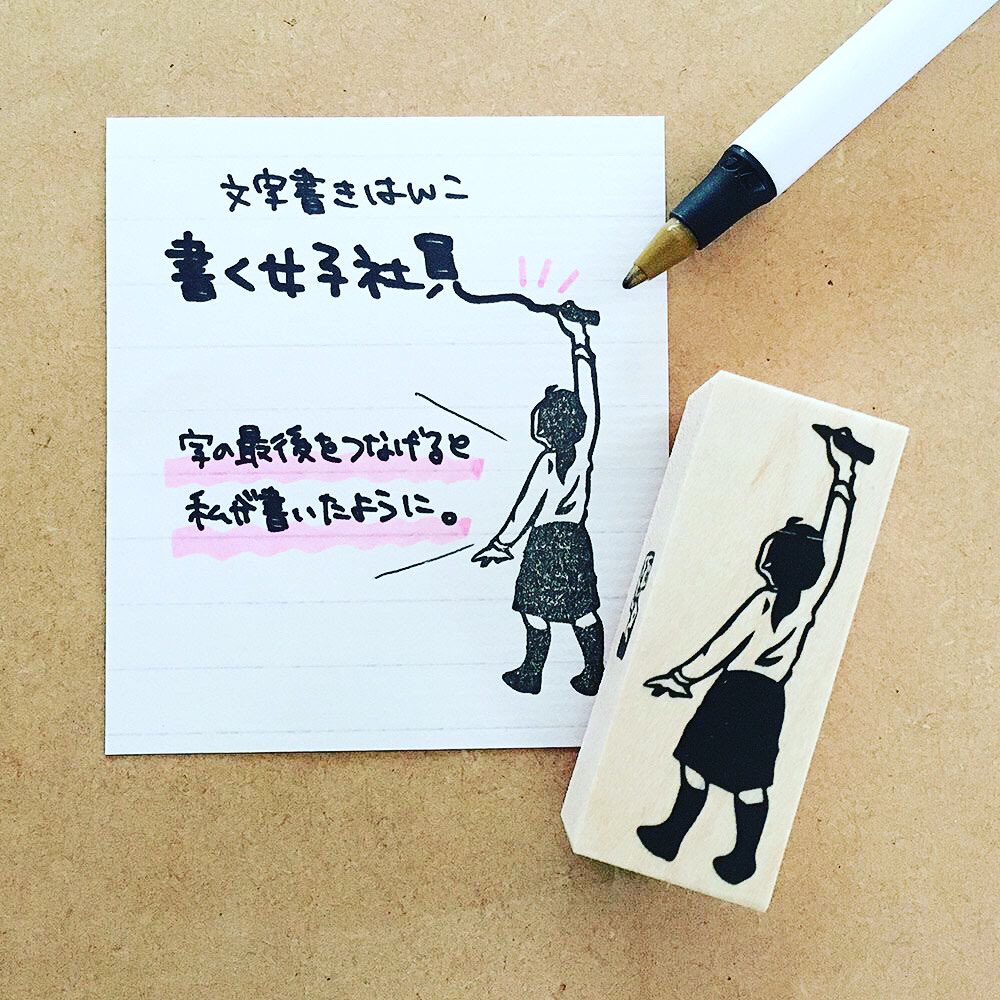 文字書きはんこ
書く女子社員
字の最後をつなげると
私が書いたように。